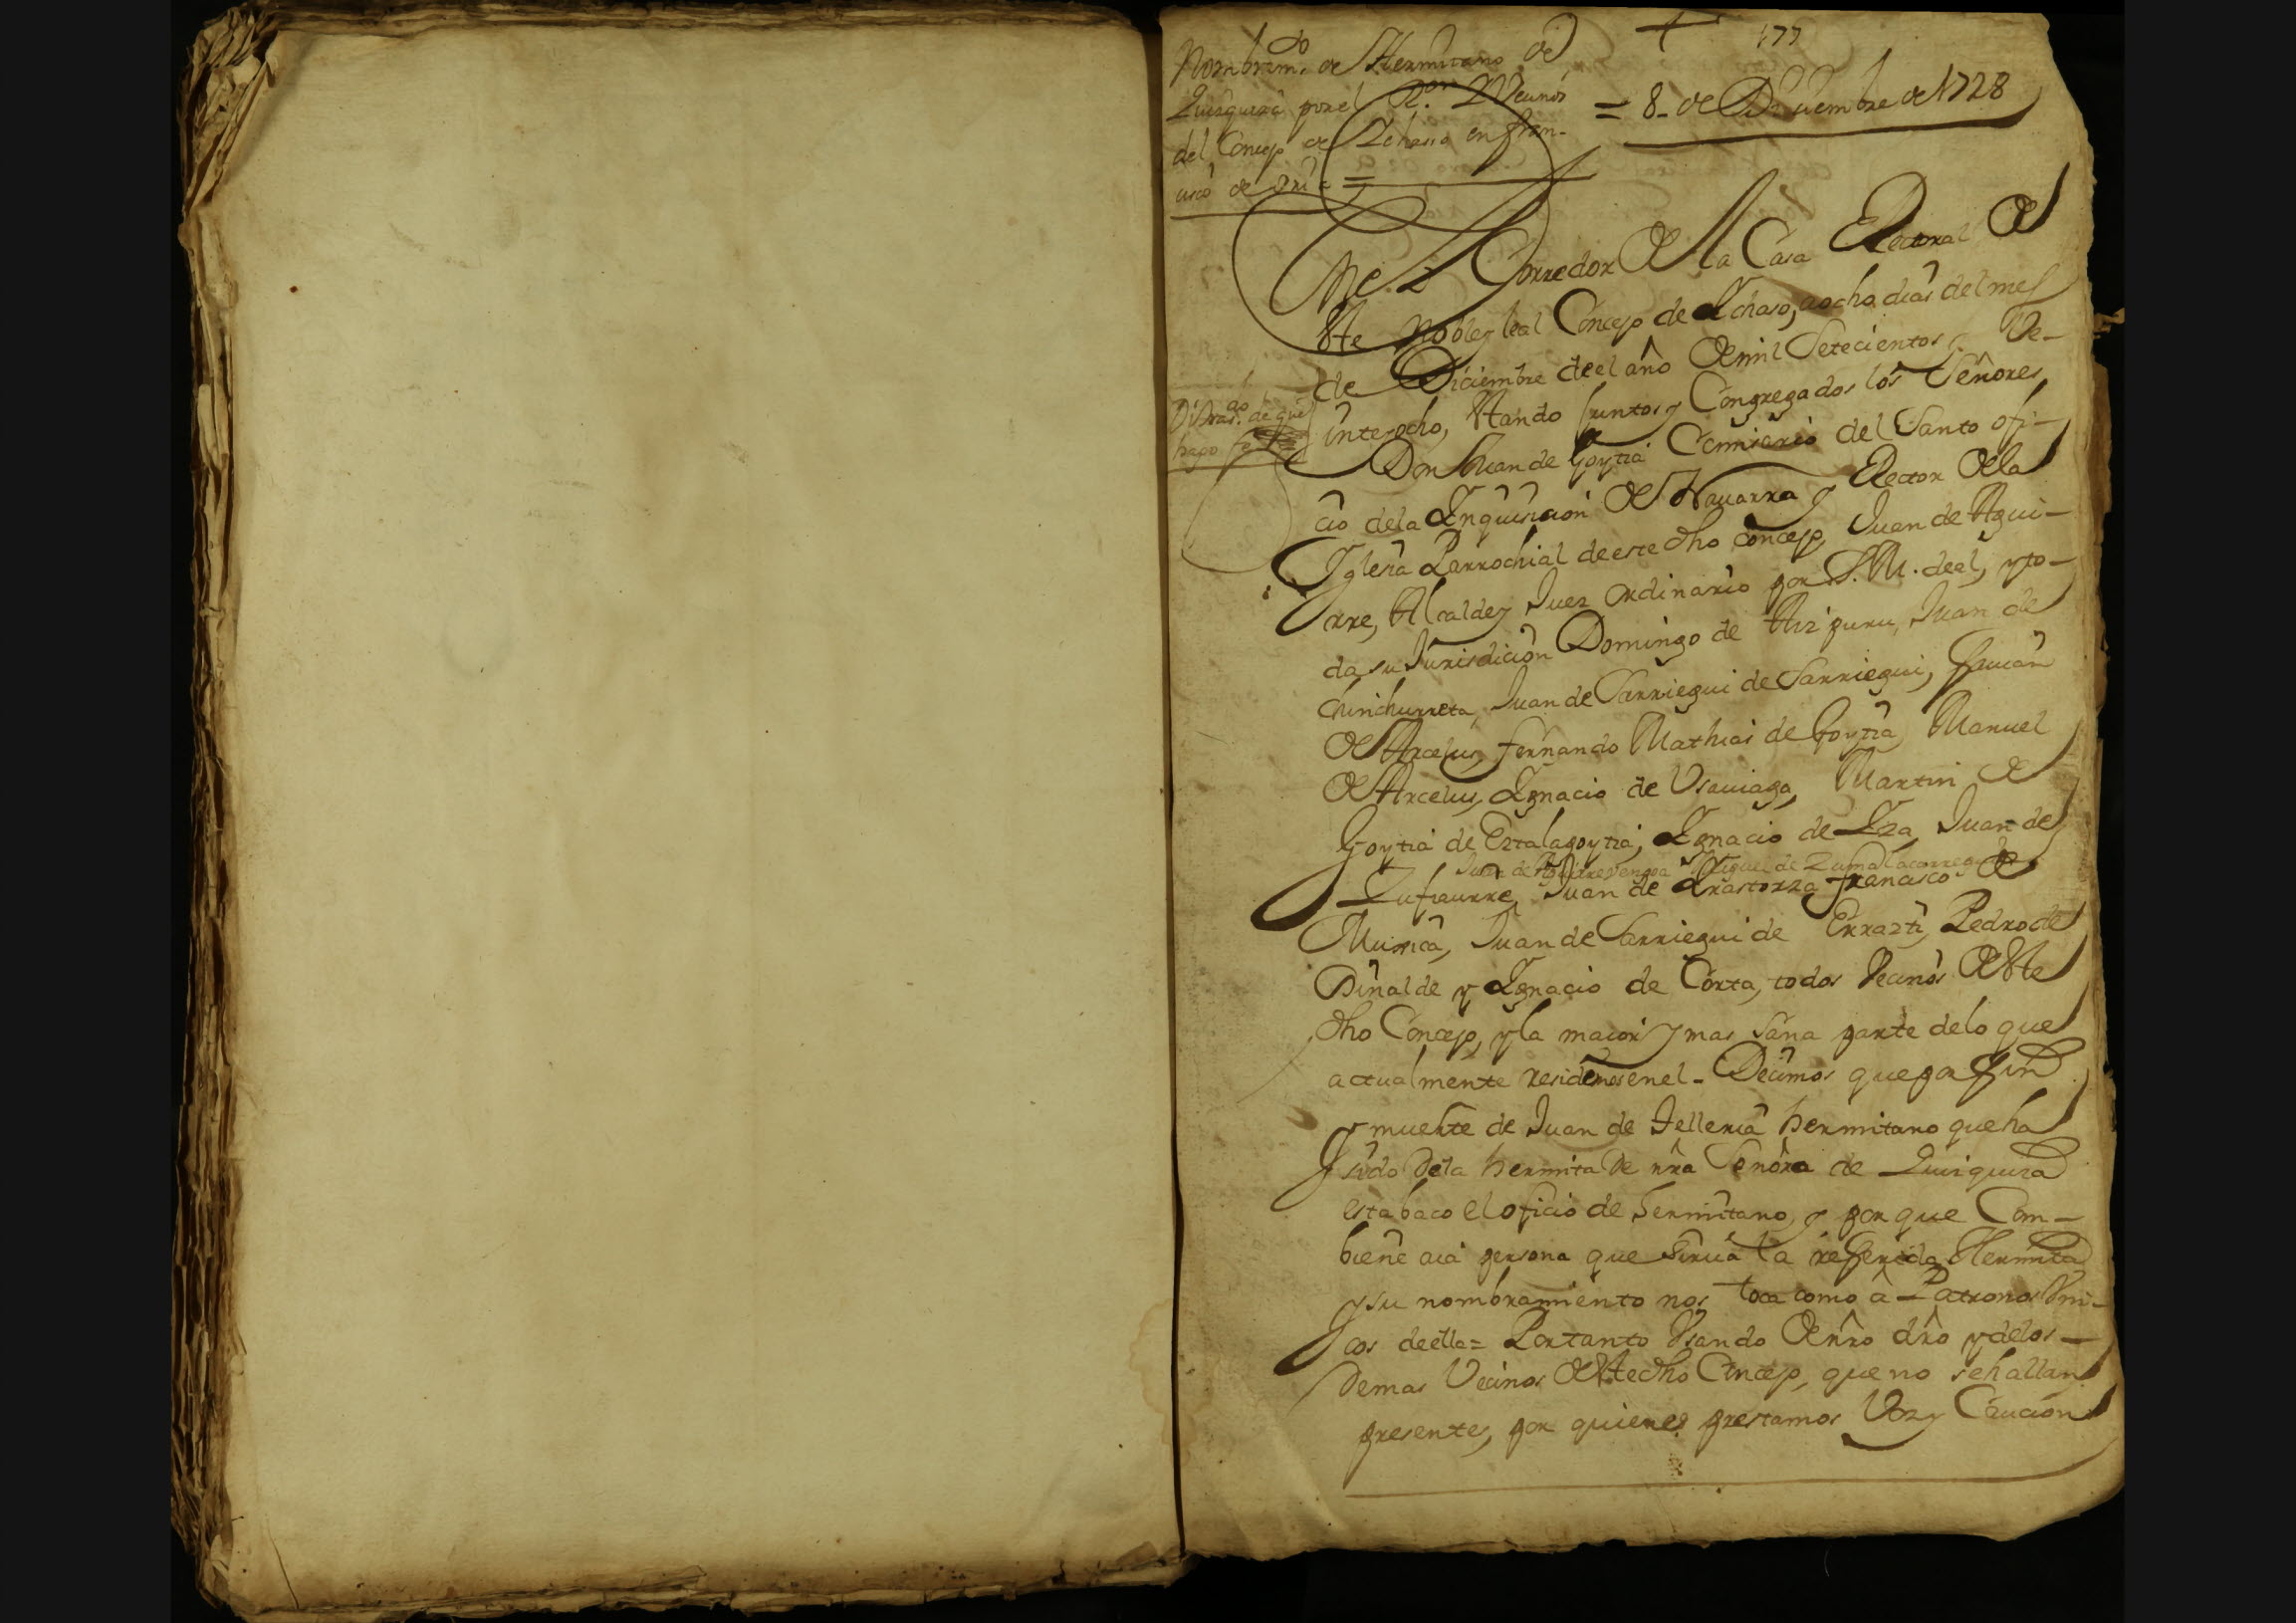 + 177
Nombram.to de Hermitano de
Quizquiza por el R.or y Vecinos
del Concejo de Ichaso en fran-
cisco de
= 8 - de Diziembre de 1728
En el Corredor de la Casa Rectoral de
este Noble y leal Concejo de Ichaso, a ocho dias del mes
de Diciembre de el año de mil Setecientos y Ve-
inte y ocho, estando Juntos y Congregados los Señores
Don Juan de Goytia Comisario del Santo ofi-
cio de la Inquisicion de Nauarra y Rector de la
Yglesia Parrochial de este dho Concejo, Juan de Agui-
rre, Alcalde y Juez ordinario por S. M. de el, y to-
da su Jurisdicion Domingo de Aizpuru, Juan de
Chinchurreta, Juan de Sarriegui de Sarriegui,
de Arcelus, fernando Mathias de Goytia, Manuel
de Arcelus, Ignacio de Vsauiaga, Martin de
Goytia de Eztalagoytia, Ignacio de Iza, Juan de
Juan de Aguirrevengoa Miguel de Zumalacarregui
Zufiaurre, Juan de Irastorza, francisco de
Muxica, Juan de Sarriegui de Errazti, Pedro de
Dinalde y Ignacio de Corta, todos Vecinos de este
dho Concejo, y la maior y mas Sana parte de lo que
actualmente residimos en el - Decimos que por fin
y muerte de Juan de Telleria hermitano que ha
sido de la hermita de nra Señora de Quizquiza
esta baco el oficio de hermitano, y por que Com-
biene aia persona que Sirua la refferida Hermita
y su nombramiento nos toca como a Patronos Vni-
cos de ella = Por tanto Vsando de nro dro y de los
demas Vecinos de este dho Concejo, que no se hallan
presentes, por quienes prestamos Voz y Caucion
Di tras.do de que
hago fe